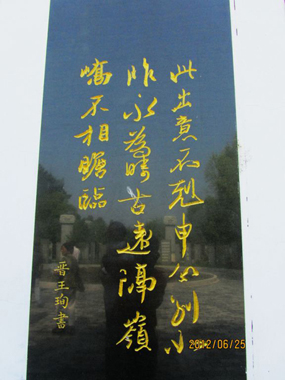 此出意不剋申分别如
昨永為疇古遠隔嶺
嶠不相瞻臨
晋王珣書
2012/06/25